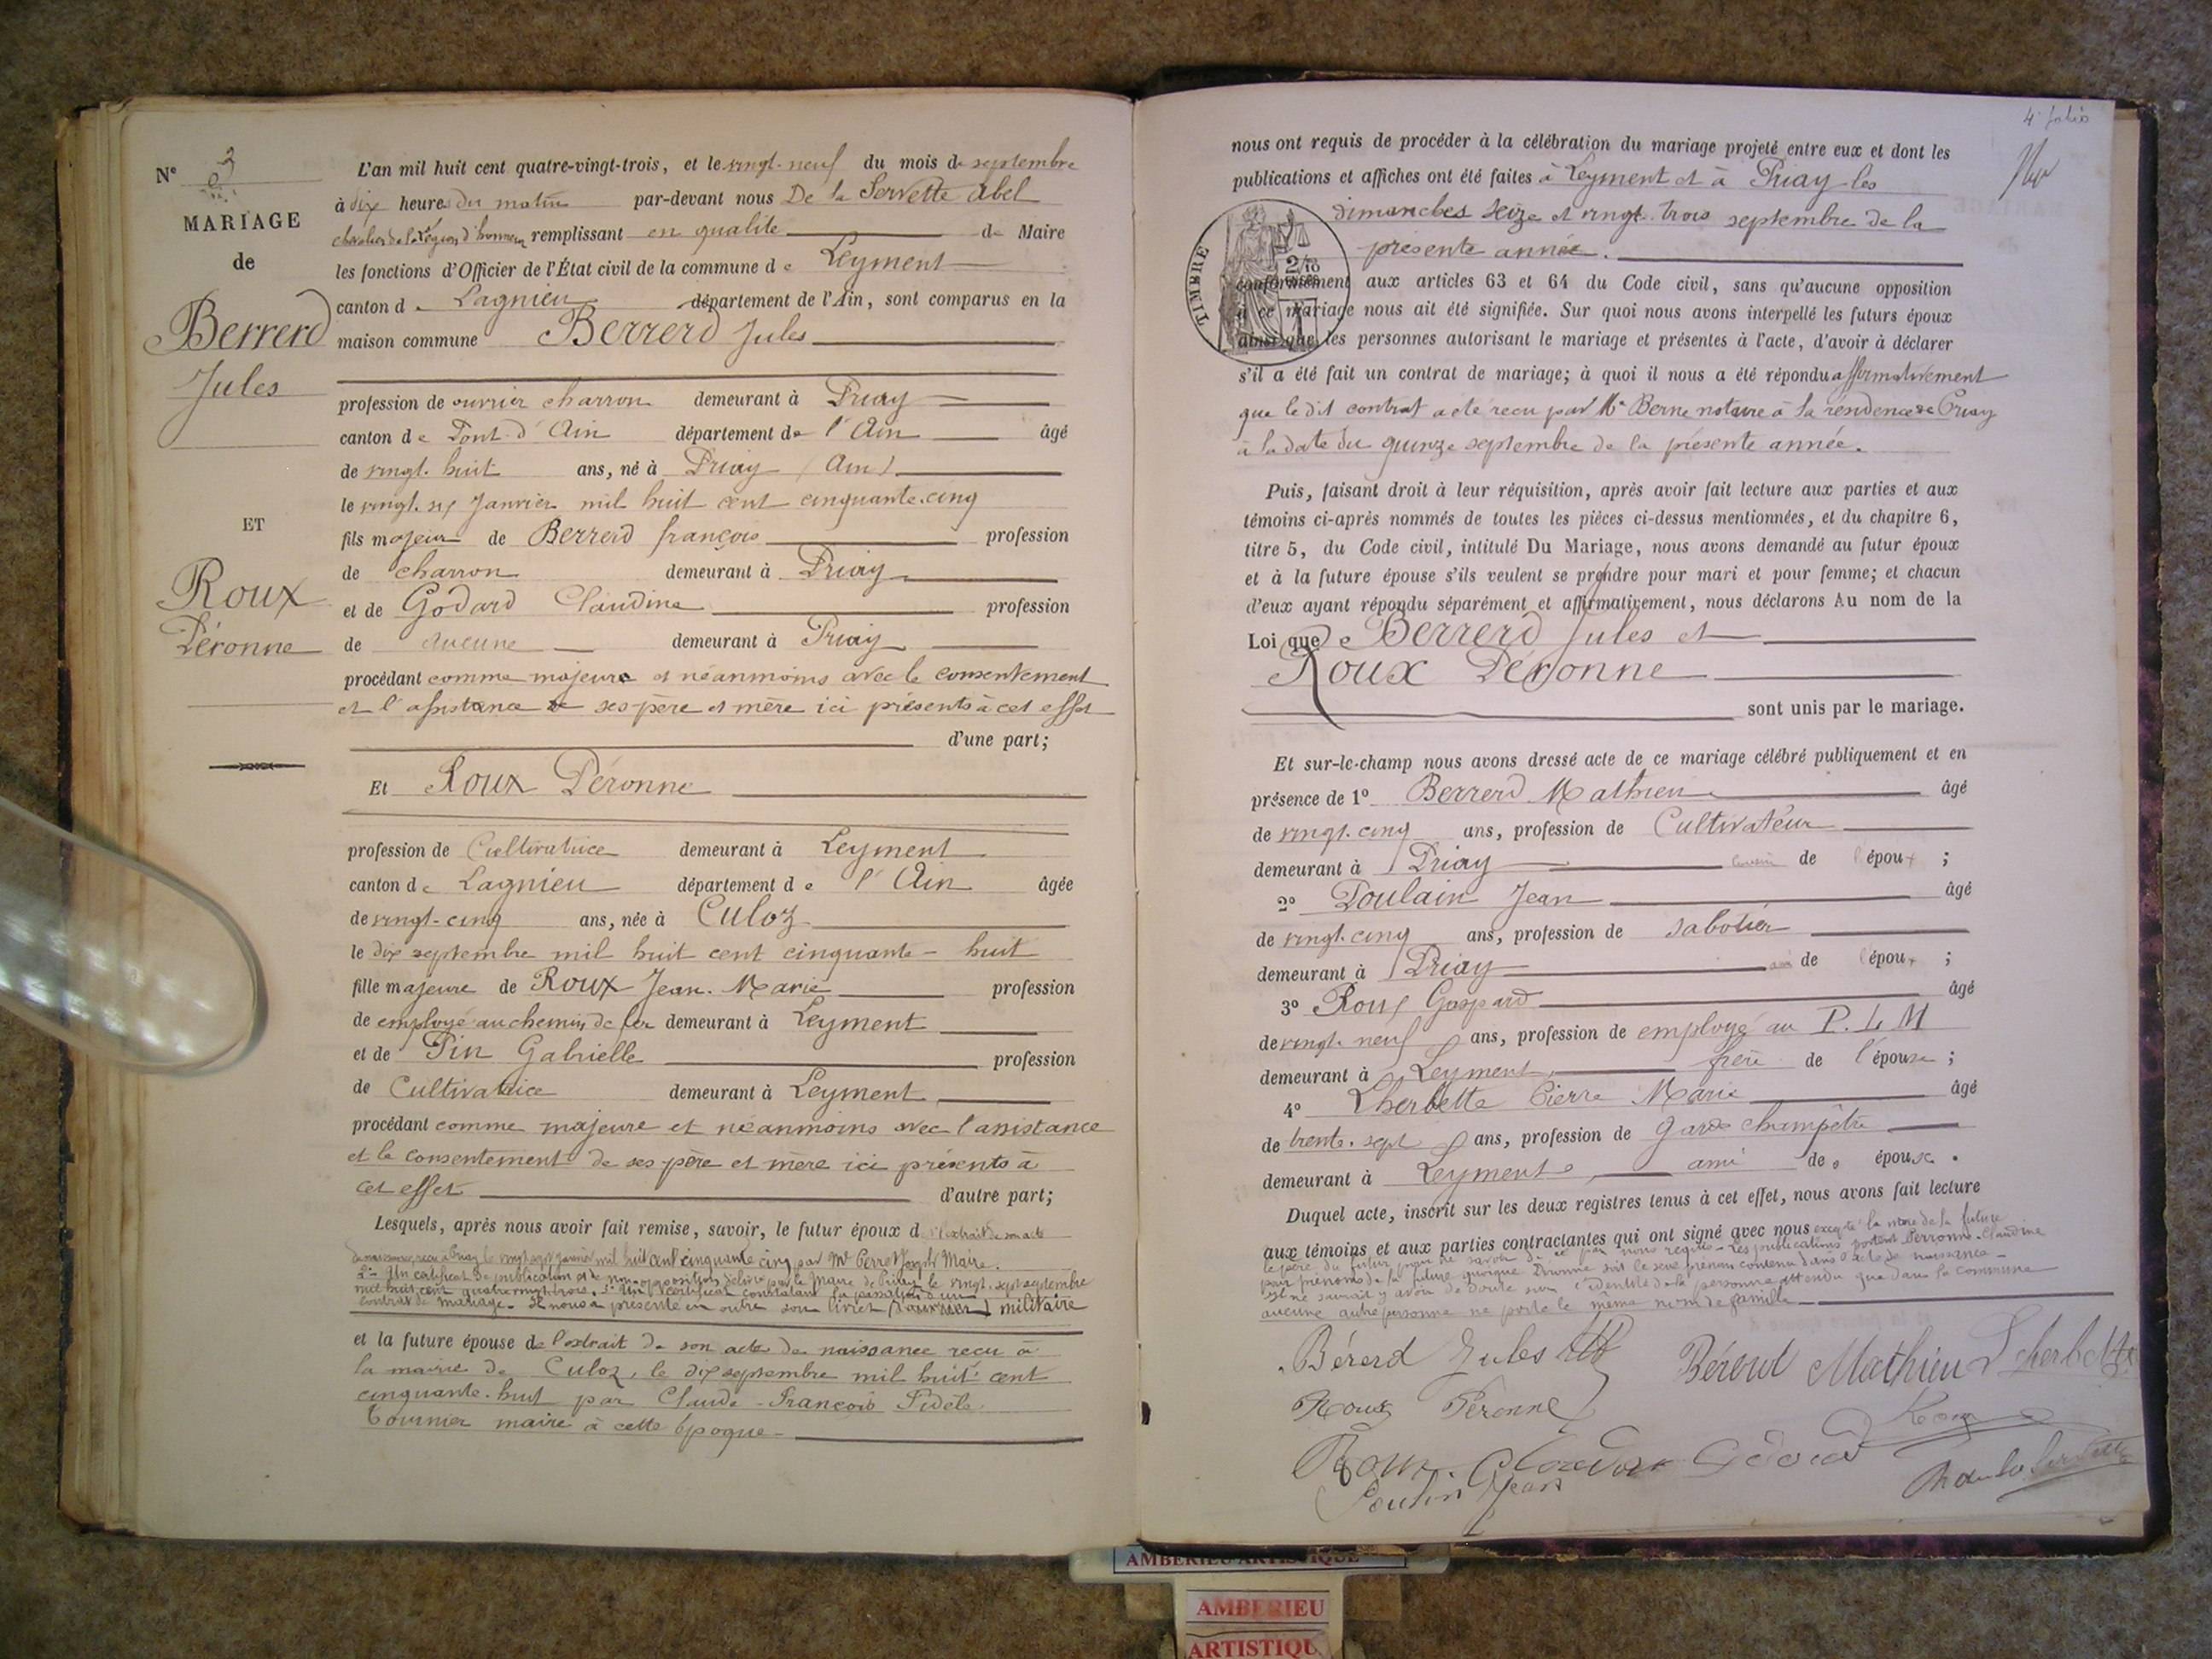 N° 3
MARIAGE
de
Berrerd
Jules
ET
Roux
Péronne
L'an mil huit cent quatre-vingt-trois, et le vingt-neuf du mois de septembre
à dix heures du matin par-devant nous De la Servette Abel
chevalier de la Légion d'honneur remplissant en qualité de Maire
les fonctions d'Officier de l'État civil de la commune de Leyment
canton de Lagnieu département de l'Ain, sont comparus en la
maison commune Berrerd Jules
profession de ouvrier charron demeurant à Priay
canton de Pont-d'Ain département de l'Ain âgé
de vingt-huit ans, né à Priay (Ain)
le vingt-six Janvier mil huit cent cinquante-cinq
fils majeur de Berrerd françois profession
de charron demeurant à Priay
et de Godard Claudine profession
de aucune demeurant à Priay
procédant comme majeure et néanmoins avec le consentement
et l'assistance de ses père et mère ici présents à cet effet
d'une part;
Et Roux Péronne
profession de Cultivatrice demeurant à Leyment
canton de Lagnieu département de l'Ain âgée
de vingt-cinq ans, née à Culoz
le dix septembre mil huit cent cinquante-huit
fille majeure de Roux Jean-Marie profession
de employé au chemin de fer demeurant à Leyment
et de Pin Gabrielle profession
de Cultivatrice demeurant à Leyment
procédant comme majeure et néanmoins avec l'assistance
et le consentement de ses père et mère ici présents à
cet effet d'autre part;
Lesquels, après nous avoir fait remise, savoir, le futur époux de l'extrait de son acte
de naissance reçu à Priay le vingt-six janvier mil huit cent cinquante cinq par Mr Perret Joseph Maire.
2° Un certificat de publication et de non-opposition délivré par le Maire de Priay le vingt-sept septembre
mil huit cent quatre-vingt-trois. 3° Un certificat constatant la passation d'un
contrat de mariage. Il nous a présenté en outre son livret (d'ouvrier) militaire
et la future épouse de l'extrait de son acte de naissance reçu à
la mairie de Culoz, le dix septembre mil huit cent
cinquante-huit par Claude-François Fidèle
Tournier maire à cette époque
4e folio
nous ont requis de procéder à la célébration du mariage projeté entre eux et dont les
publications et affiches ont été faites à Leyment et à Priay les
dimanches seize et vingt-trois septembre de la
présente année.
TIMBRE
conformément aux articles 63 et 64 du Code civil, sans qu'aucune opposition
à ce mariage nous ait été signifiée. Sur quoi nous avons interpellé les futurs époux
ainsi que les personnes autorisant le mariage et présentes à l'acte, d'avoir à déclarer
s'il a été fait un contrat de mariage; à quoi il nous a été répondu affirmativement
que le dit contrat a été reçu par Me Berne notaire à la résidence de Priay
à la date du quinze septembre de la présente année.
Puis, faisant droit à leur réquisition, après avoir fait lecture aux parties et aux
témoins ci-après nommés de toutes les pièces ci-dessus mentionnées, et du chapitre 6,
titre 5, du Code civil, intitulé Du Mariage, nous avons demandé au futur époux
et à la future épouse s'ils veulent se prendre pour mari et pour femme; et chacun
d'eux ayant répondu séparément et affirmativement, nous déclarons Au nom de la
Loi que Berrerd Jules et
Roux Péronne
sont unis par le mariage.
Et sur-le-champ nous avons dressé acte de ce mariage célébré publiquement et en
présence de 1° Berrerd Mathieu âgé
de vingt-cinq ans, profession de Cultivateur
demeurant à Priay cousin de l'époux ;
2° Poulain Jean âgé
de vingt-cinq ans, profession de sabotier
demeurant à Priay ami de l'époux ;
3° Roux Gaspard âgé
de vingt-neuf ans, profession de employé au P. L. M
demeurant à Leyment frère de l'épouse ;
4° Lherbette Pierre Marie âgé
de trente-sept ans, profession de garde champêtre
demeurant à Leyment ami de épouse.
Duquel acte, inscrit sur les deux registres tenus à cet effet, nous avons fait lecture
aux témoins et aux parties contractantes qui ont signé avec nous excepté la mère de la future
le père du futur pour ne savoir de ce par nous requis - Les publications portent Perronne-Claudine
pour prénoms de la future quoique Péronne soit le seul prénom contenu dans l'acte de naissance -
Il ne saurait y avoir de doute sur l'identité de la personne attendu que dans la commune
aucune autre personne ne porte le même nom de famille
Bérerd Jules
Bérerd Mathieu
Lherbette
Roux Péronne
Roux
Roux. Claudine Godard
Poulin Jean
AMBERIEU ARTISTIQUE
AMBERIEU
ARTISTIQU